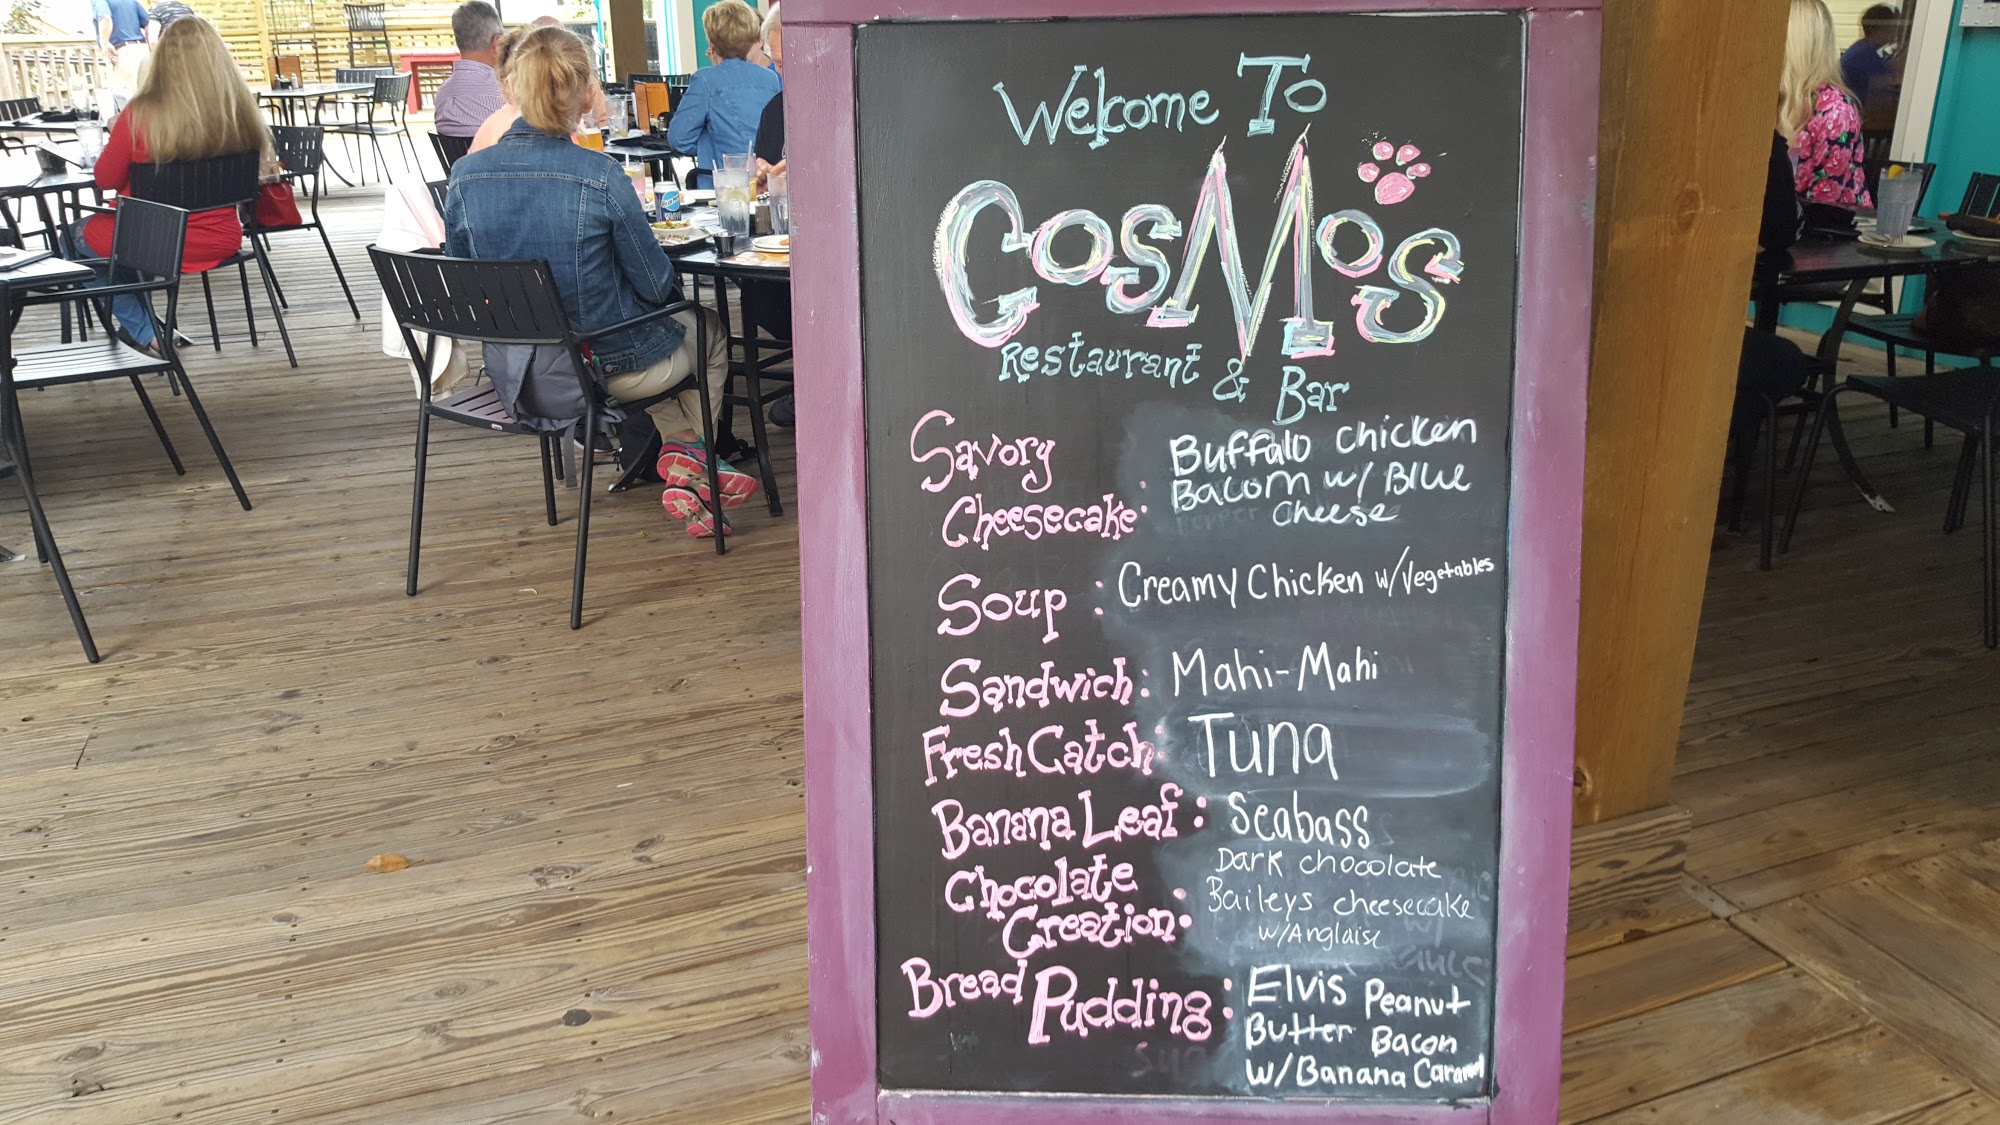 Welcome To
CosMos
Restaurant & Bar
Savory
Cheesecake:
Buffalo chicken
Bacom w/ Blue
cheese
Soup : Creamy Chicken w/Vegetables
Sandwich: Mahi-Mahi
Fresh Catch: Tuna
Banana Leaf: Seabass
Chocolate
Creation:
Dark chocolate
Baileys cheesecake
w/Anglaise
Bread Pudding:
Elvis Peanut
Butter Bacon
w/Banana Caramel